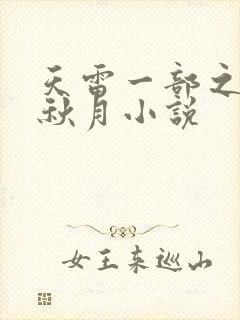 天雷一部之
秋月小说
女王来巡山